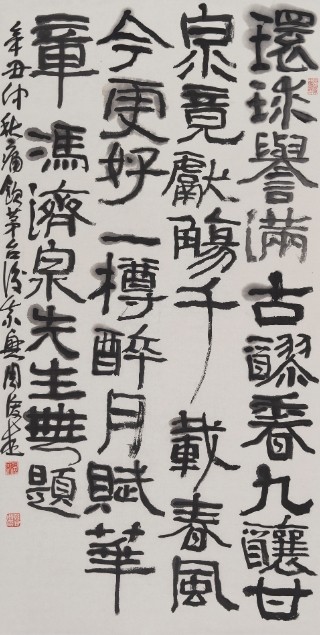 環球譽滿古醪香九釀甘
泉竟獻觴千載春風
今更好一樽醉月賦華
章馮濟泉先生無題
辛丑仲秋痛飲茅台後